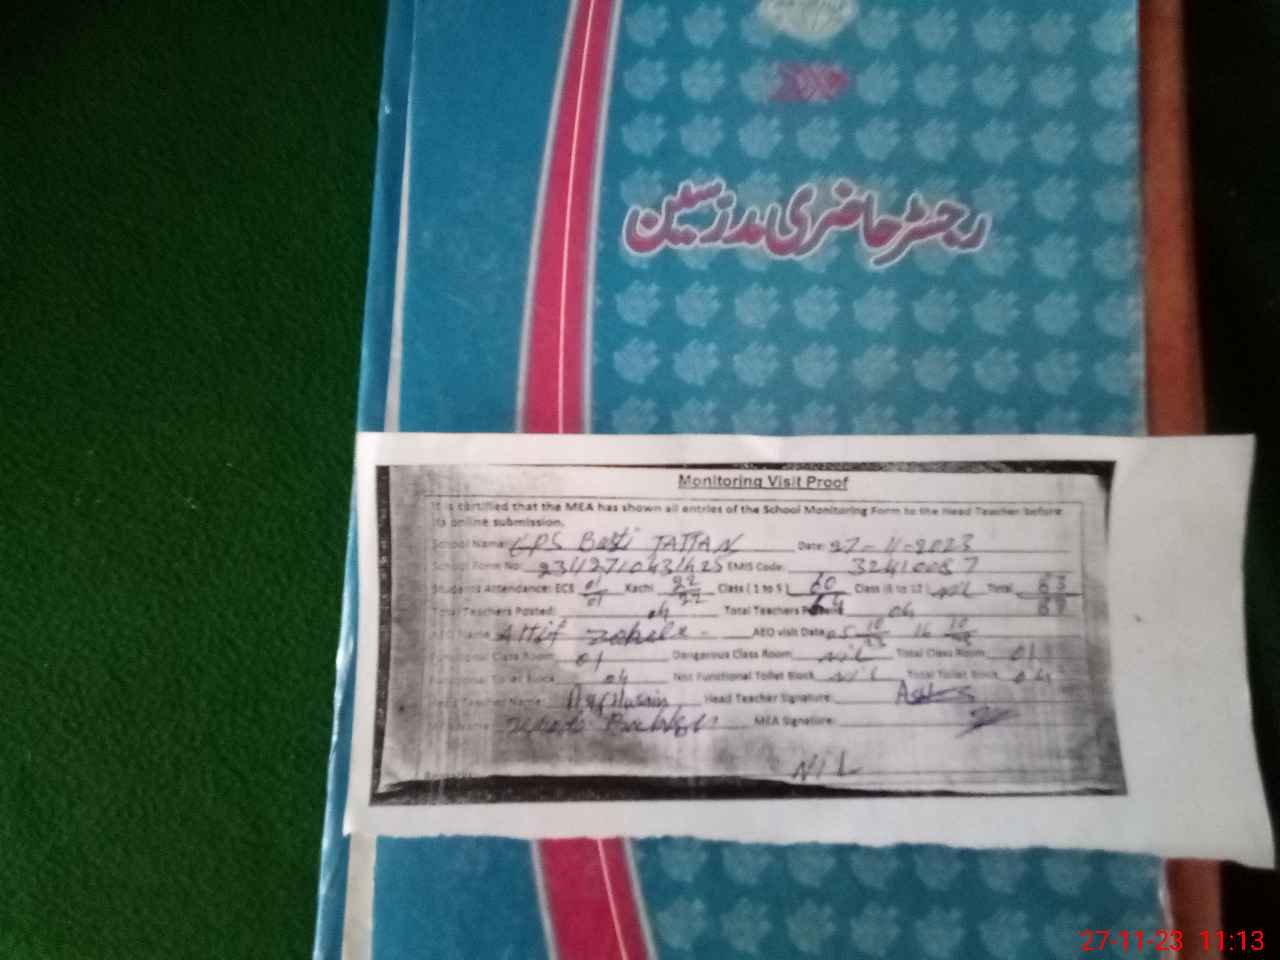 رجسٹر حاضری مدرسین
Monitoring Visit Proof
It is certified that the MEA has shown all entries of the School Monitoring Form to the Head Teacher before
its online submission.
School Name: GPS Basti JATTAN Date: 27-11-2023
School Form No: EMIS Code: 32410087
Students Attendance: ECE 01/01 Kachi 22/22 Class (1 to 5) 60/64 Class (6 to 12) Nil Total 83/87
Total Teachers Posted: 04 Total Teachers 04
AEO Name: AEO visit Date 05 10/23 16 10/23
Functional Class Room 01 Dangerous Class Room NIL Total Class Room 01
Functional Toilet Block 04 Not Functional Toilet Block NIL Total Toilet Block 04
Head Teacher Name: Husain Head Teacher Signature:
MEA Signature:
NIL
27-11-23 11:13